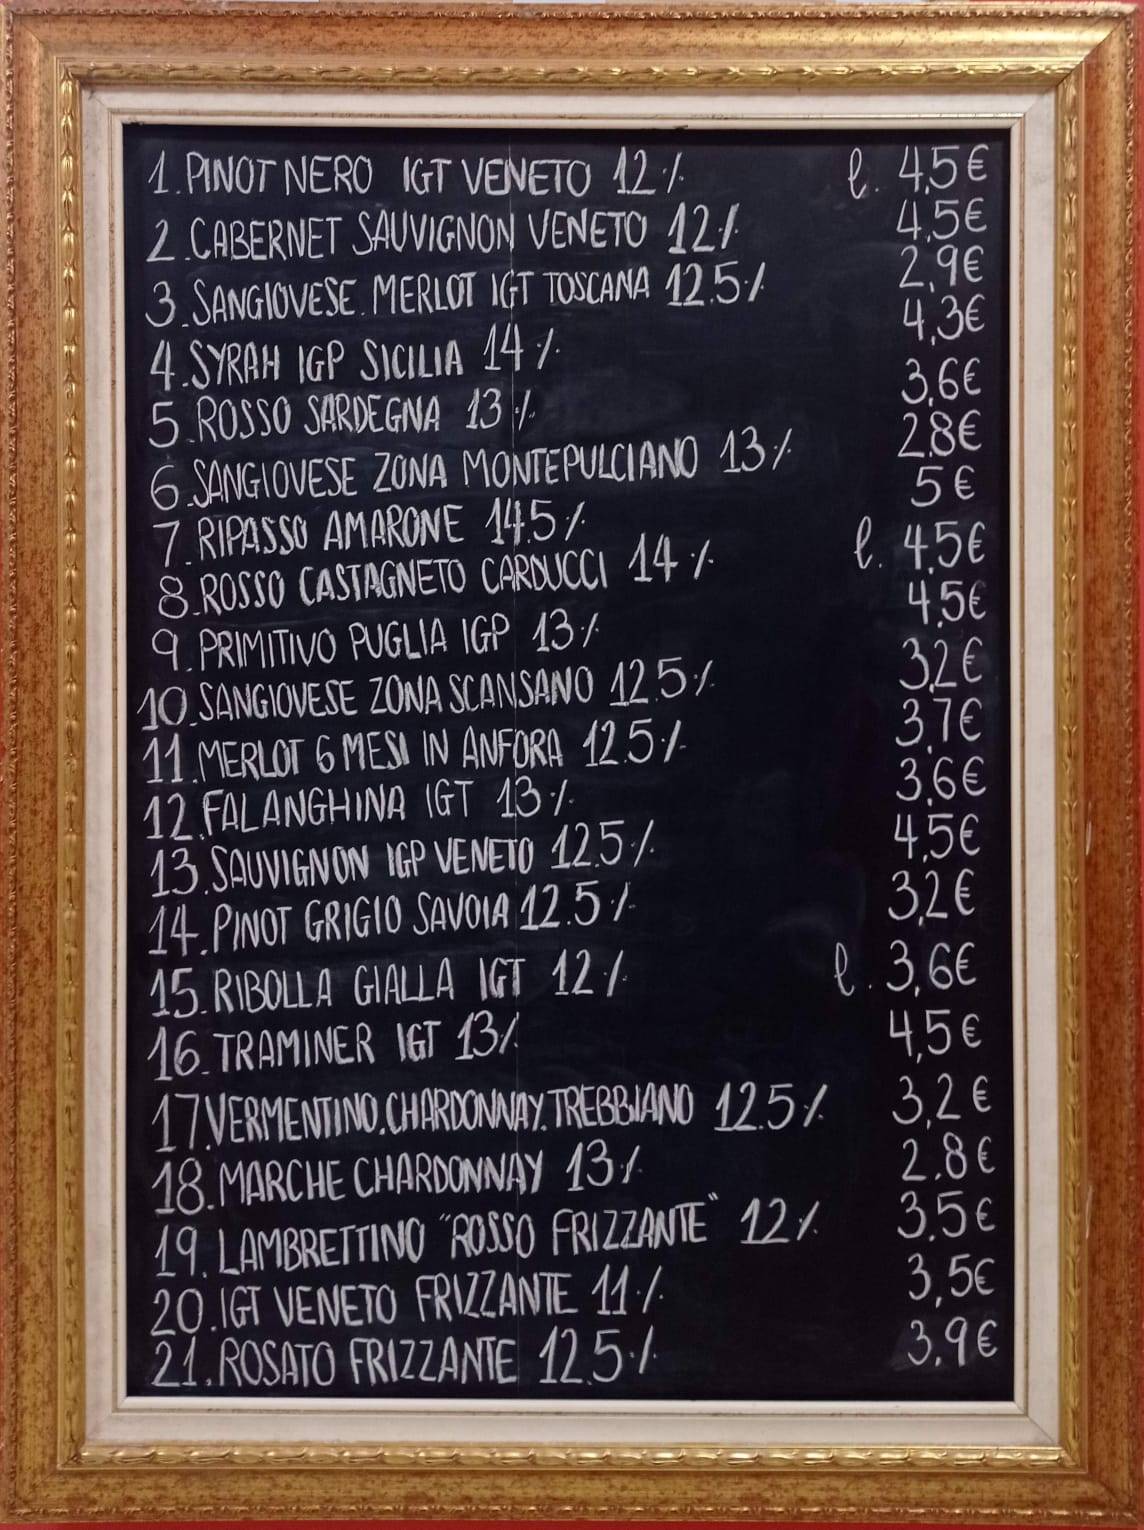 1. PINOT NERO IGT VENETO 12% l. 4,5€
2. CABERNET SAUVIGNON VENETO 12% 4,5€
3. SANGIOVESE. MERLOT IGT TOSCANA 12.5% 2,9€
4. SYRAH IGP SICILIA 14% 4,3€
5. ROSSO SARDEGNA 13% 3,6€
6. SANGIOVESE ZONA MONTEPULCIANO 13% 2.8€
7. RIPASSO AMARONE 14.5% 5€
8. ROSSO CASTAGNETO CARDUCCI 14% l. 4,5€
9. PRIMITIVO PUGLIA IGP 13% 4,5€
10. SANGIOVESE ZONA SCANSANO 12.5% 3,2€
11. MERLOT 6 MESI IN ANFORA 12.5% 3,7€
12. FALANGHINA IGT 13% 3,6€
13. SAUVIGNON IGP VENETO 12.5% 4,5€
14. PINOT GRIGIO SAVOIA 12.5% 3,2€
15. RIBOLLA GIALLA IGT 12% l. 3,6€
16. TRAMINER IGT 13% 4,5€
17. VERMENTINO. CHARDONNAY. TREBBIANO 12.5% 3,2€
18. MARCHE CHARDONNAY 13% 2.8€
19. LAMBRETTINO "ROSSO FRIZZANTE" 12% 3,5€
20. IGT VENETO FRIZZANTE 11% 3,5€
21. ROSATO FRIZZANTE 12.5% 3,9€